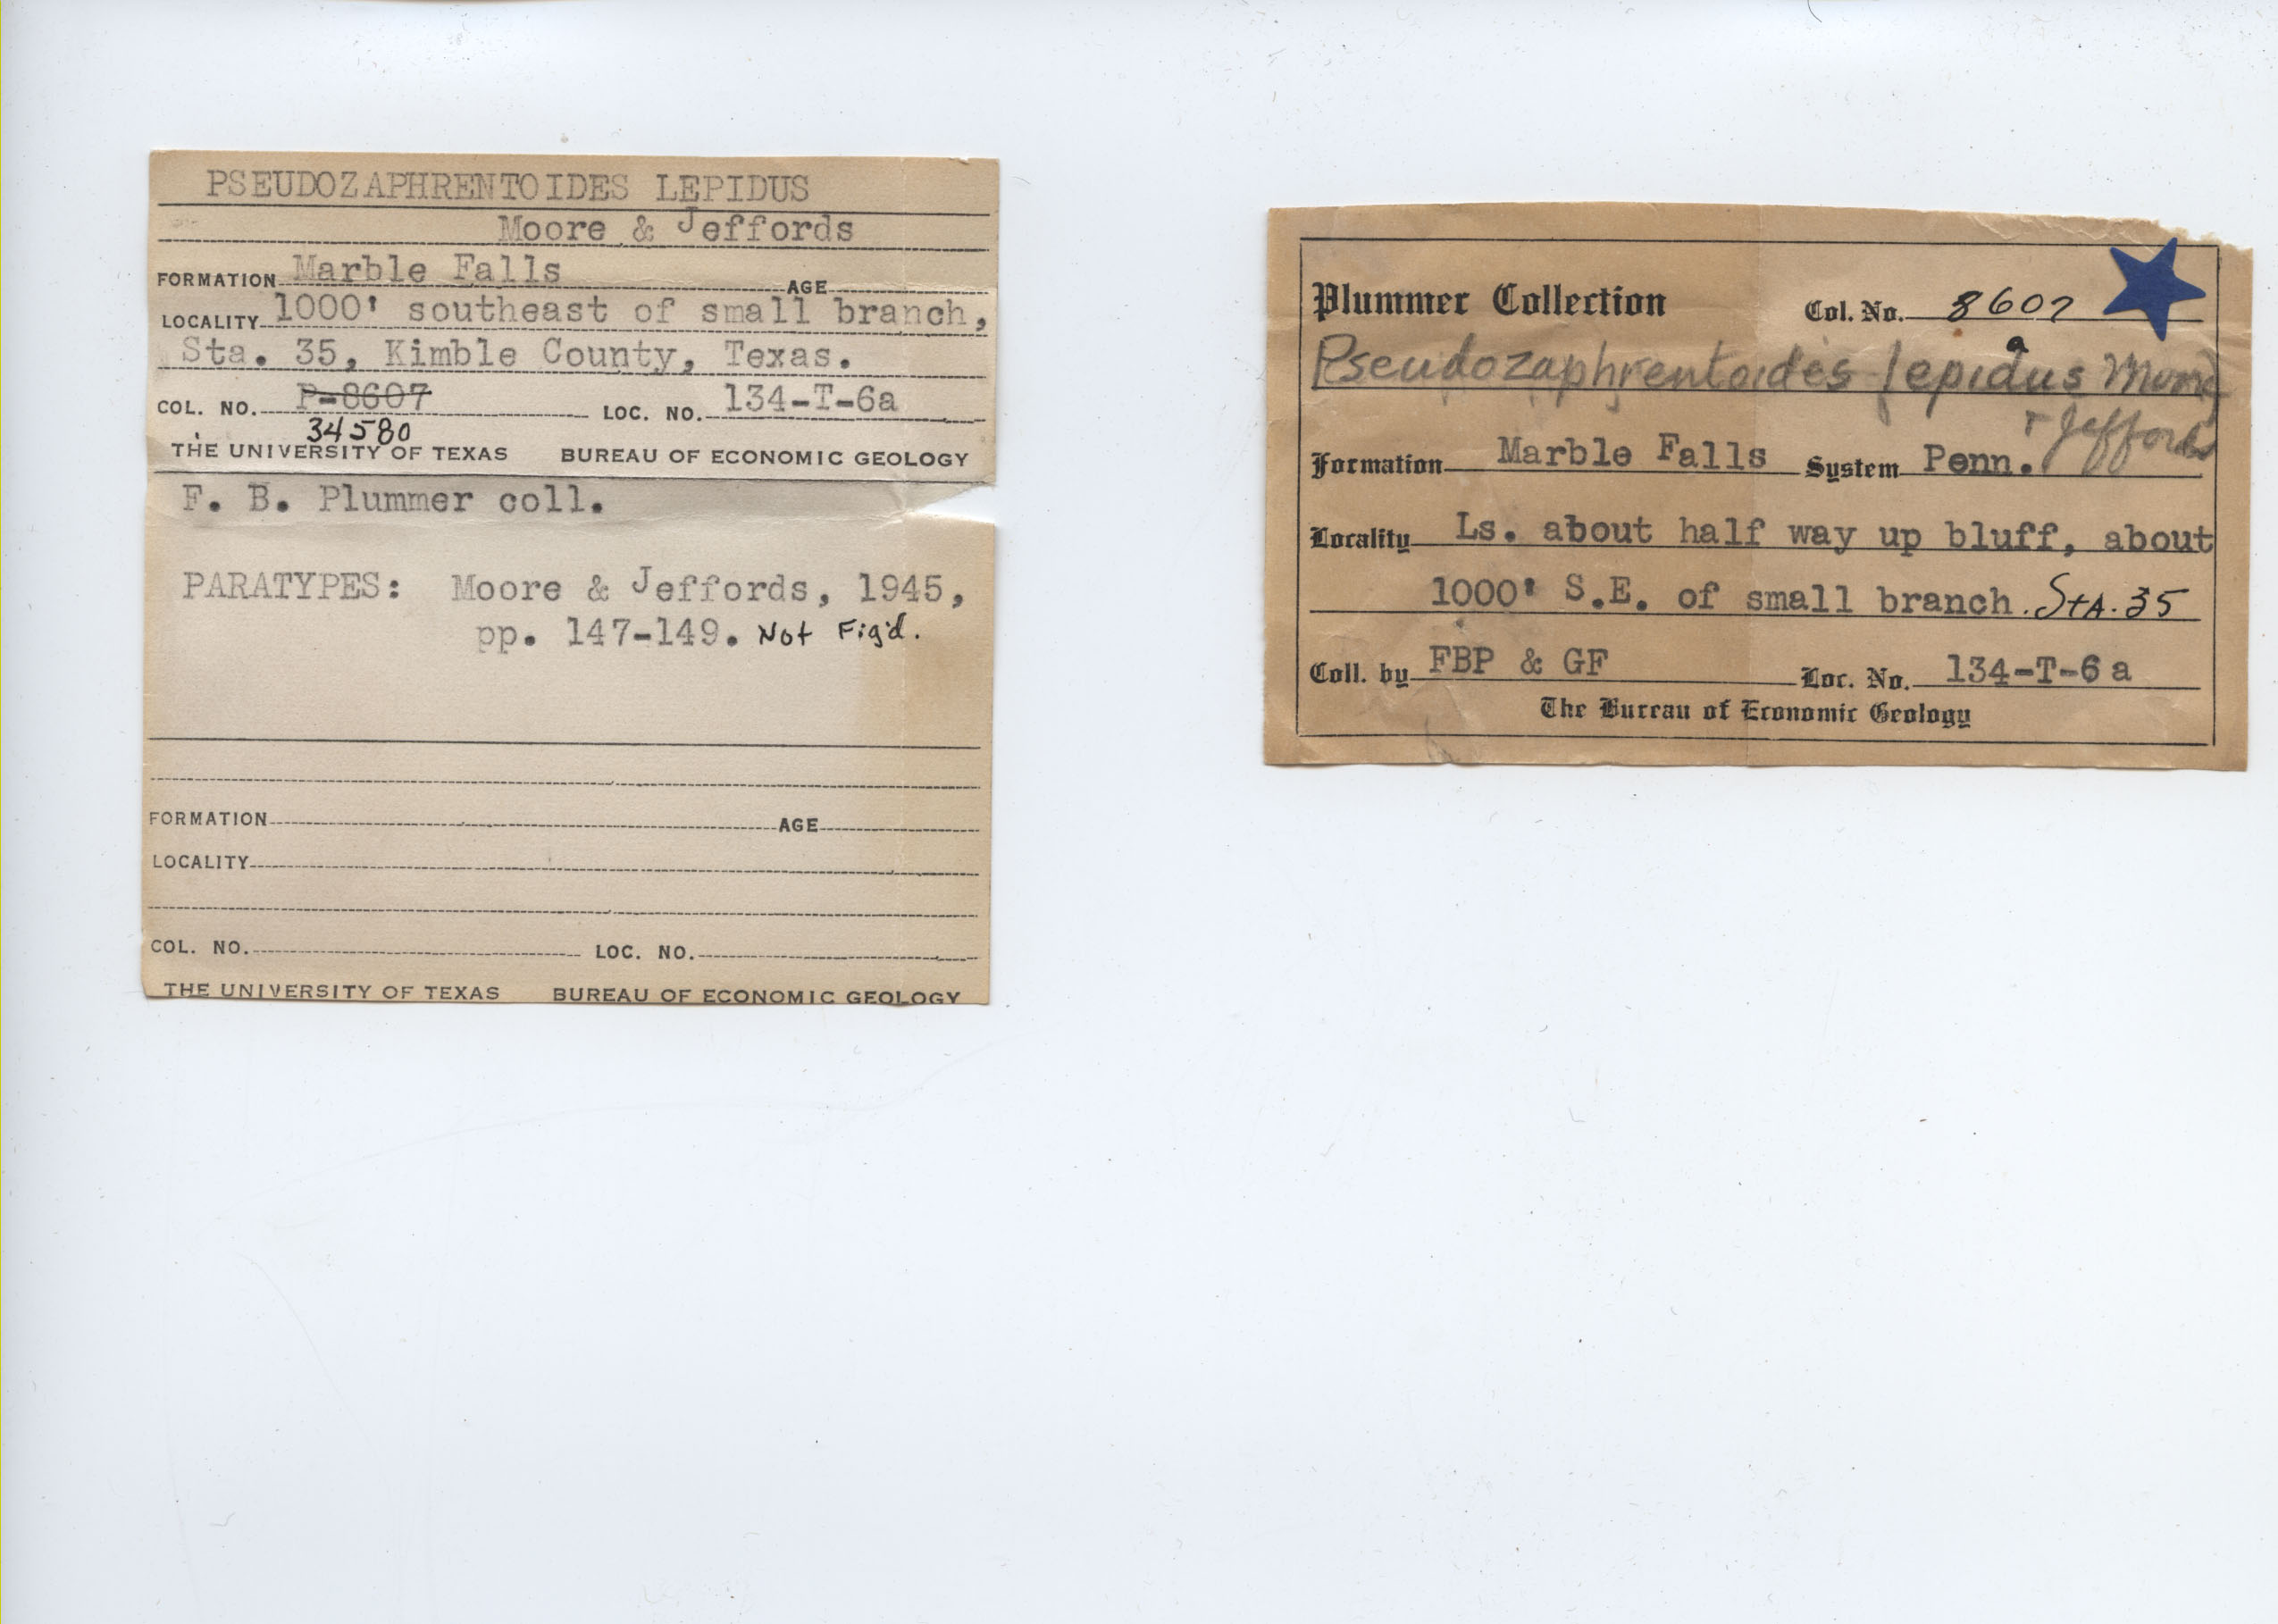 PSEUDOZAPHRENTOIDES LEPIDUS
Moore & Jeffords
FORMATION Marble Falls AGE
LOCALITY 1000' southeast of small branch,
Sta. 35, Kimble County, Texas.
COL. NO. P-8607 LOC. NO. 134-T-6a
34580
THE UNIVERSITY OF TEXAS BUREAU OF ECONOMIC GEOLOGY
F. B. Plummer coll.
PARATYPES: Moore & Jeffords, 1945,
pp. 147-149. Not Fig'd.
FORMATION AGE
LOCALITY
COL. NO. LOC. NO.
THE UNIVERSITY OF TEXAS BUREAU OF ECONOMIC GEOLOGY
Plummer Collection Col. No. 8607
a
Pseudozaphrentoides lepidus Moore
+ Jeffords
Formation Marble Falls System Penn.
Locality Ls. about half way up bluff, about
1000' S.E. of small branch. StA. 35
Coll. by FBP & GF Loc. No. 134-T-6a
The Bureau of Economic Geology